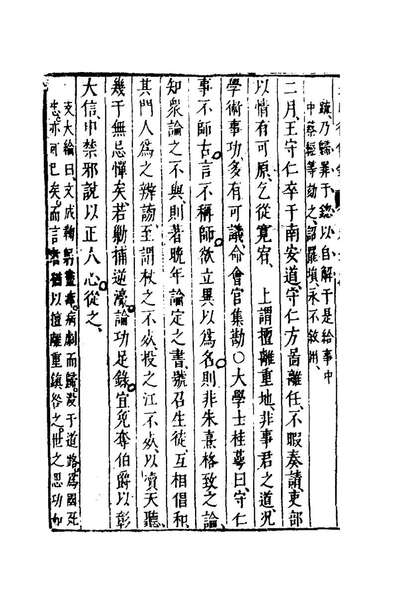 疏乃歸罪于鏓以自解于是給事中
中蔡經等劾之詔罷璜永不敘用
二月王守仁卒于南安道守仁方啚離任不暇奏請吏部
以情有可原乞從寬宥　上謂擅離重地非事君之道况
學術事功多有可議命會官集勘〇大學士桂蕚曰守仁
事不師古言不稱師欲立異以爲名則非朱熹格致之論
知衆論之不與則著晚年論定之書號召生徒互相倡和
其門人爲之辨謗至謂杖之不必投之江不必以瀆天聽
幾于無忌憚矣若勦捕逆濠論功足錄宜免奪伯爵以彰
大信申禁邪說以正人心從之
支大綸曰文成鞠躬盡瘁病劇而歸沒于道路爲國死
忠亦可已矣而言者猶以擅離重鎮咎之世之忌功如